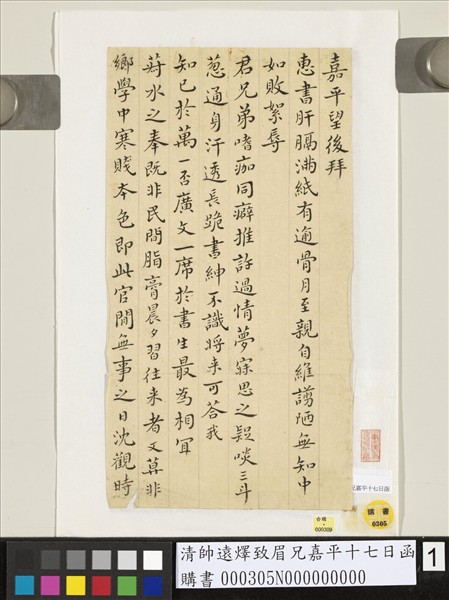 嘉平望後拜
惠書肝膈滿紙有逾骨月至親自維謭陋無知中
如敗絮辱
君兄弟嗜痂同癖推許過情夢寐思之疑啖三斗
葱通身汗透長跪書紳不識將来可答我
知己於萬一否廣文一席於書生最為相宜
蒪水之奉既非民間脂膏晨夕習往来者又莫非
鄉學中寒賤本色即此官閒無事之日沈觀時
兄嘉平十七日函
購書
0305
台購
000309
清帥遠燡致眉兄嘉平十七日函
購書 000305N000000000
1